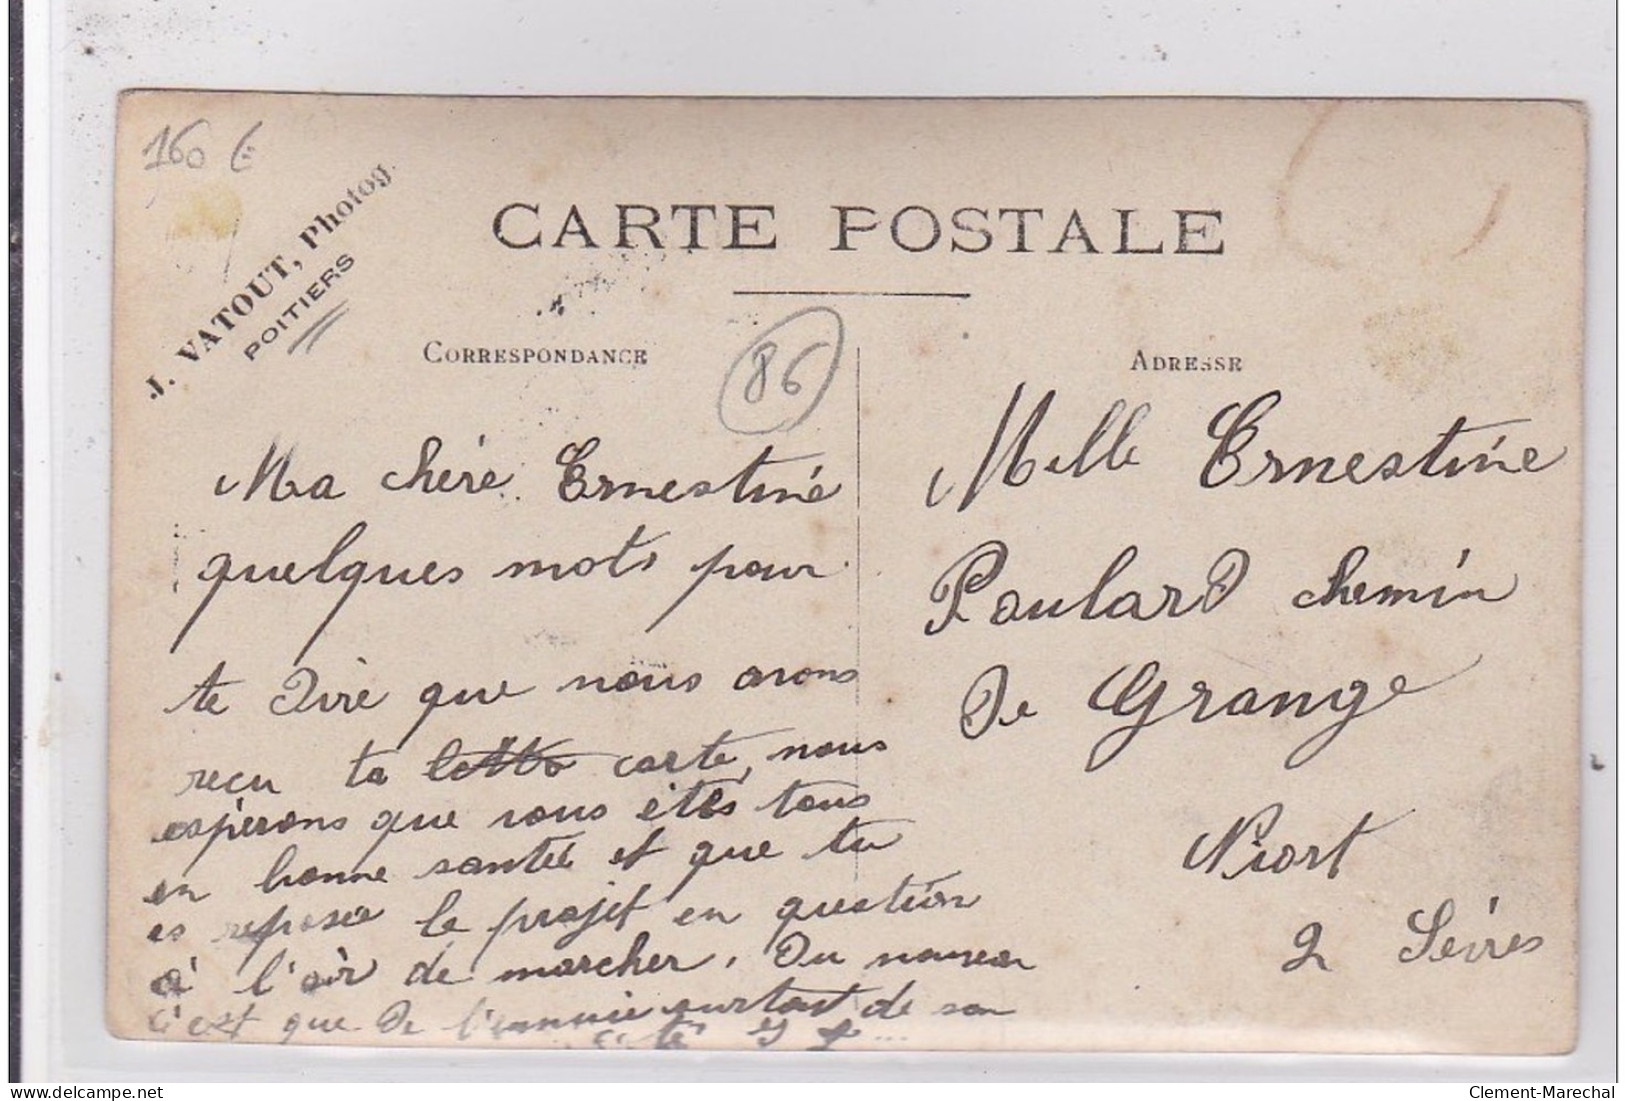 160 €
J. VATOUT, Photog.
POITIERS
CARTE POSTALE
CORRESPONDANCE
86
ADRESSE
Ma chère Ernestine
quelques mots pour
te dire que nous avons
reçu ta lettre carte, nous
espérons que vous êtes tous
en bonne santée et que tu
es reposée le projet en question
à l'air de marcher. Du nouveau
c'est que de l'ennuie surtout de son
côté
Melle Ernestine
Poulard chemin
De Grange
Niort
2 Sèvres
Clement-Marechal